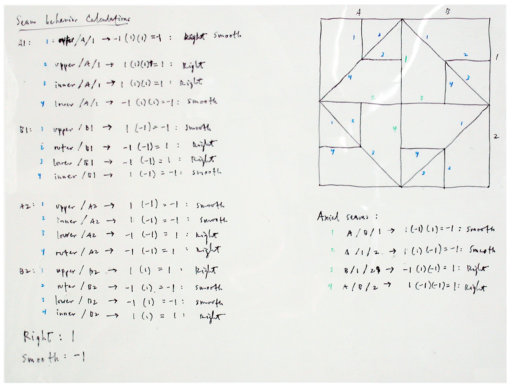 Seam behavior Calculations
A1: 1 upper /A/1 → -1 (1)(1) = -1 : Smooth
2 upper /A/1 → 1 (1)(1) = 1 : Right
3 inner /A/1 → 1 (1)(1) = 1 : Right
4 lower /A/1 → -1 (1)(1) = -1 : Smooth
B1: 1 upper /B1 → 1 (-1) = -1 : Smooth
outer /B1 → -1 (-1) = 1 : Right
3 lower /B1 → -1 (-1) = 1 : Right
4 inner /B1 → 1 (-1) = -1 : Smooth
A2: 1 upper /A2 → 1 (-1) = -1 : Smooth
2 inner /A2 → 1 (-1) = -1 : Smooth
3 lower /A2 → -1 (-1) = 1 : Right
4 outer /A2 → -1 (-1) = 1 : Right
B2: 1 upper /B2 → 1 (1) = 1 : Right
2 outer /B2 → -1 (1) = -1 : Smooth
3 lower /B2 → -1 (1) = -1 : Smooth
4 inner /B2 → 1 (1) = 1 : Right
Right : 1
Smooth : -1
A B
1
2
Axial seams :
1 A/B/1 → 1 (-1)(1) = -1 : Smooth
2 A/1/2 → 1 (1)(-1) = -1 : Smooth
3 B/1/2 → -1 (1)(-1) = 1 : Right
4 A/B/2 → 1 (-1)(-1) = 1 : Right